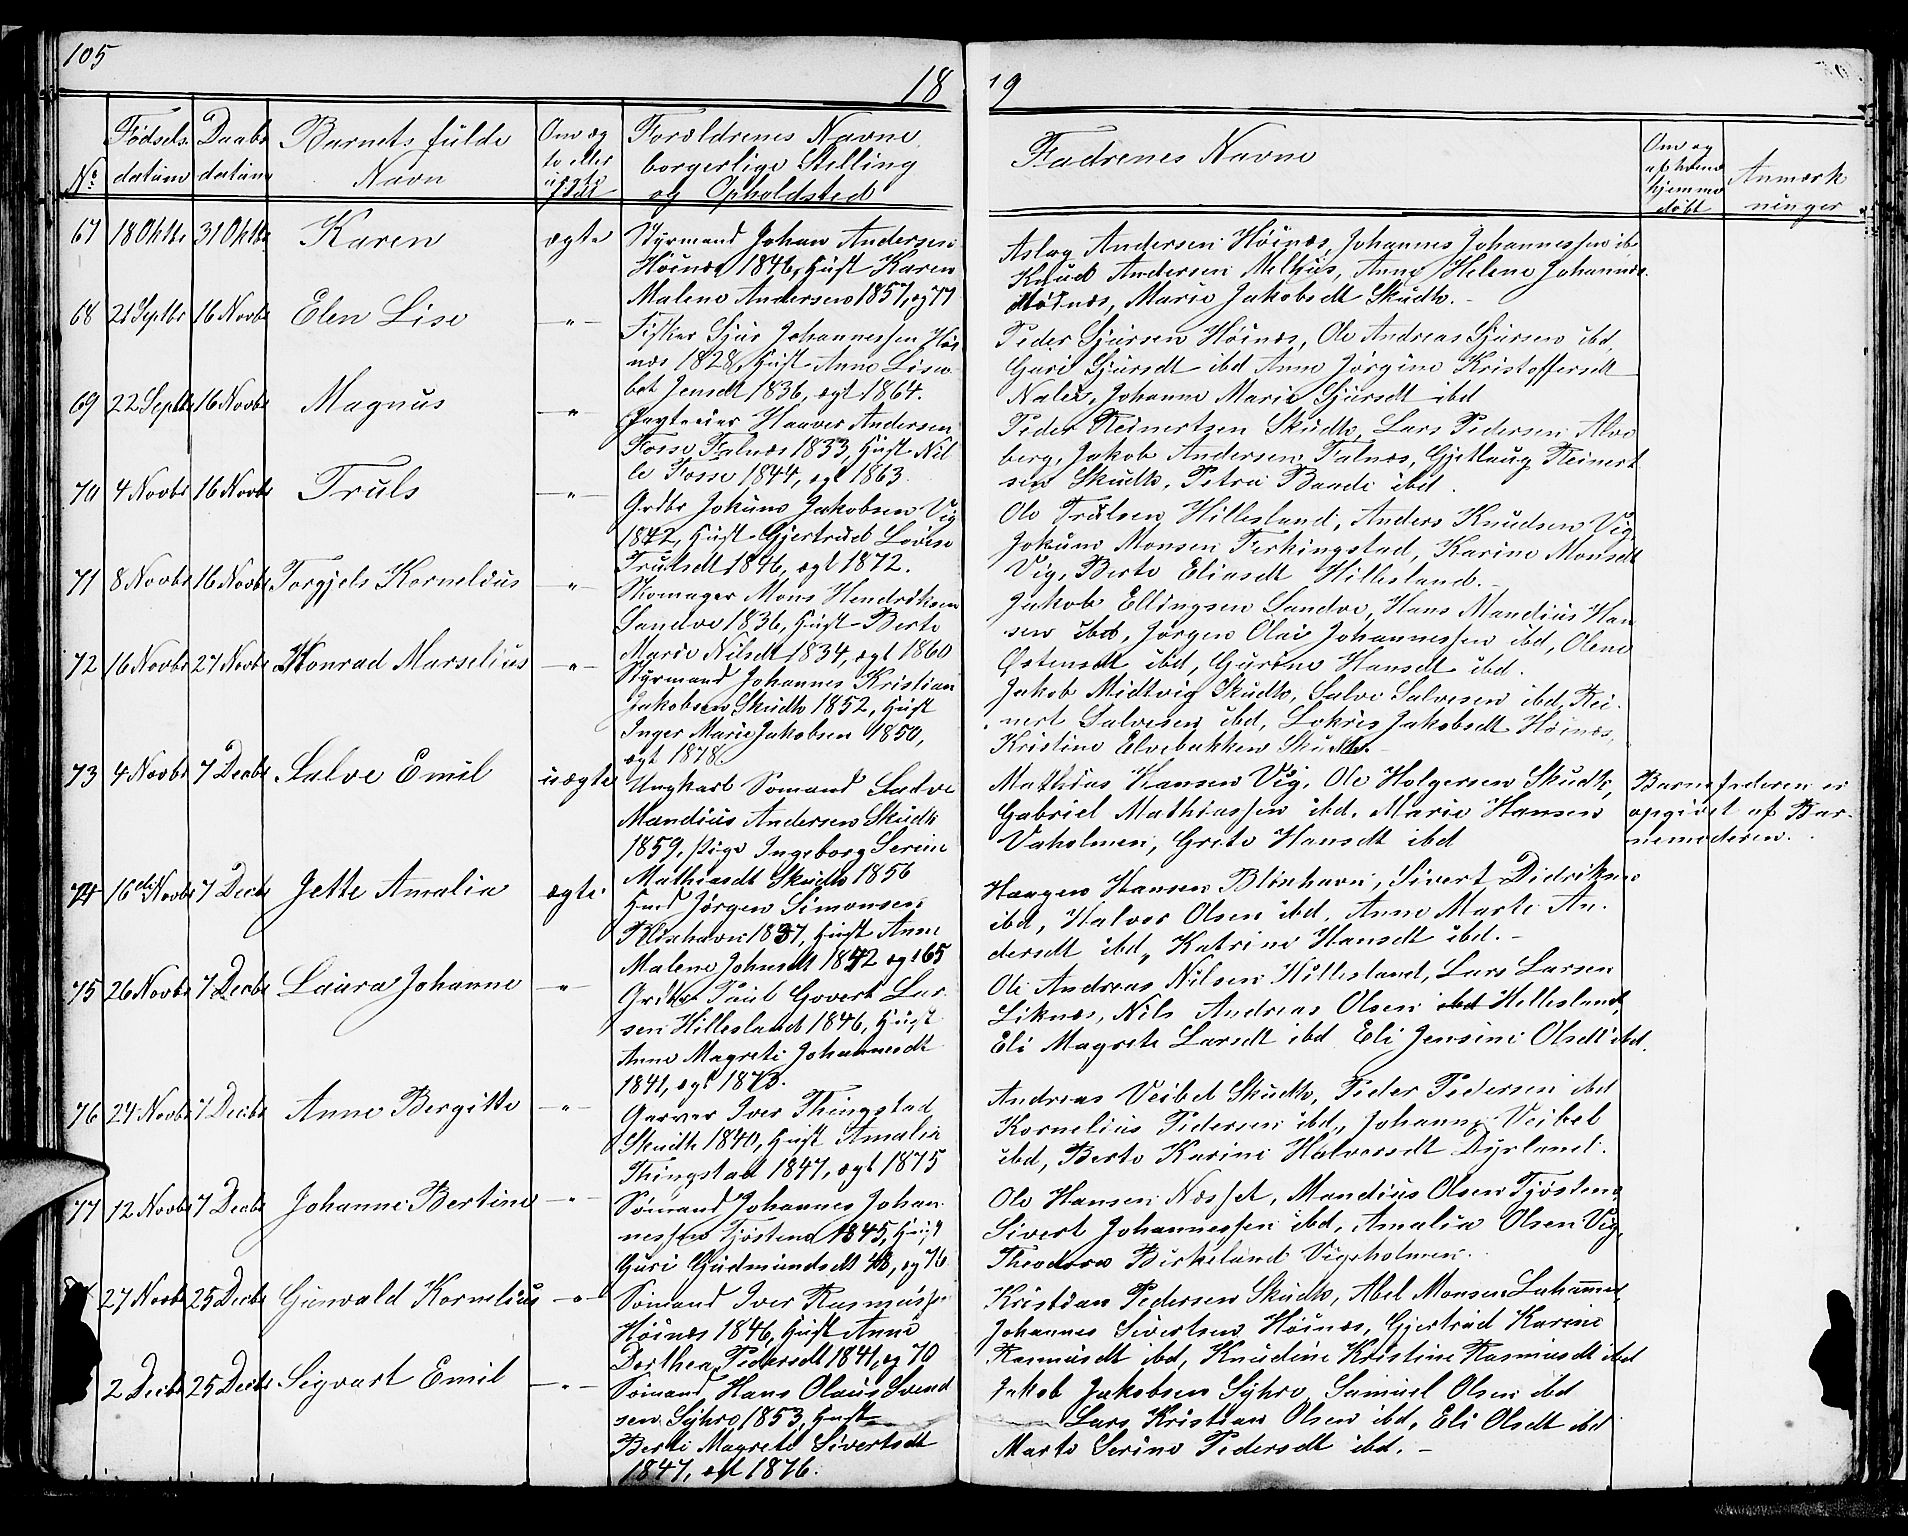 105
18
19
No
Fødsels
datum
Daabs
datum
Barnets fulde
Navn
Om æg
te eller
uægte
født
Forældrenes Navne,
borgerlige Stilling
og Opholdsted
Fadrenes Navne
Om og
hjemme
døbt
Anmærk
ninger
67 18 Oktbr 31 Oktbr Karen ægte
Styrmand Johan Andersen
Høinæs 1846, Hust Karen
Malene Andersen 1857, ægt 77
Aslag Andersen Høinæs, Johannes Johannessen ib
Knud Andersen Melhus, Anne Helene Johannes
Høinæs, Marie Jakobsdt Skudh.-
68 21 Septbr 16 Novbr Elen Lise -"-
Fisker Sjur Johannessen Høi
næs 1828, Hust Anne Lisa-
bet Jensdt 1836, ægt 1864.
Peder Sjursen Høinæs, Ole Andreas Sjursen ibd,
Guri Sjursdt ibd Anne Jørgine Kristoffersdt
Nalei, Johanne Marie Sjursdt ibd
69 22 Septbr 16 Novbr Magnus -"-
Haaver Andersen
Fosse Falnæs 1833, Hust Nil
le Fosse 1844, ægt 1863.
Peder Reinertsen Skudh, Lars Pedersen Alve
berg, Jakob Andersen Falnæs, Gjetlaug Reinert
sen Skudh, Petra Baadi ibd.
70 4 Novbr 16 Novbr Truls -"-
Grdbr Jokum Jakobsen Vig
1842, Hust Gjertrud Lovise
Trulsdt 1846, ægt 1872.
Ole Trulsen Hillesland, Anders Knudsen Vig
Jokum Monsen Ferkingstad, Karine Monsdt
Vig, Berte Eliasdt Hillesland.-
71 8 Novbr 16 Novbr Torgjels Kornelius "
Skomager Mons Hendriksen
Sandve 1836, Hust Berte
Marie Nilsdt 1834, ægt 1860
Jakob Ellingsen Sandve, Hans Mandius Han
sen ibd, Jørgen Olai Johannessen ibd, Olene
Østensdt ibd, Gurine Hansdt ibd.
72 16 Novbr 27 Novbr Konrad Marselius -"-
Styrmand Johannes Kristian
Jakobsen Skudh 1852, Hust
Inger Marie Jakobsen 1850,
ægt 1878
Jakob Midtvig Skudh, Salve Salvesen ibd, Rei
nert Salvesen ibd, Lokris Jakobsdt Høinæs,
Kristine Elvebakken Skudh.-
73 4 Novbr 7 Decbr Salve Emil uægte
Ungkarl Sømand Sadve
Mandius Andersen Skudh
1859, Pige Ingeborg Serine
Mathiasdt Skudh 1856
Mathias Hansen Vig, Ole Holgersen Skudh,
Gabriel Mathiassen ibd, Marie Hansen
Vaholmen, Grete Hansdt ibd
Barnefaderen er
opgivet af Bar-
nemoderen.
74 16de Novbr 7 Decbr Jette Amalia ægte
Hmd Jørgen Simonsen
Blixhavn 1837, Hust Anne
Malene Johnsdt 1842 ægt 65
Haagen Hansen Blixhavn, Sivert Didriksen
ibd, Halvor Olsen ibd, Anne Marte An.
dersdt ibd, Katrine Hansdt ibd.-
75 26 Novbr 7 Decbr Laura Johanne -"-
Grdbr Paul Govert Lar
sen Hillesland 1846, Hust
Anne Magrete Johannesdt
1841, ægt 1873.
Ole Andreas Nilsen Hillesland, Lars Larsen
Liknæs, Nils Andreas Olsen ibd Hillesland,
Eli Magrete Larsdt ibd Eli Jensine Olsdt ibd.
76 24 Novbr 7 Decbr Anne Bergitte -"-
Garver Iver Thingstad
Skudh 1840, Hust Amalia
Thingstad 1847, ægt 1875
Andreas Veibel Skudh, Peder Pedersen ibd
Kornelius Pedersen ibd, Johanne Veibel
ibd, Berte Karine Halversdt Dyrland.
77 12 Novbr 7 Decbr Johanne Bertine -"-
Sømand Johannes Johan
nessen Tjøsteno 1845, Hust
Guri Gudmundsdt 48, ægt 76
Ole Hansen Næsset, Mandius Olsen Tjøstene,
Sivert Johannessen ibd, Amalia Olsen Vig,
Theodora Birkeland Vigeholmen.
27 Novbr 25 Decbr Gunvald Kornelius -"-
Sømand Iver Rasmussen
Høinæs 1846, Hust Anne
Dorthea Pedersdt 1841, ægt 70
Kristian Pedersen Skudh, Abel Monsen Lahammer,
Johannes Sivertsen Høinæs, Gjertrud Karine
Rasmusdt ibd, Knudine Kristine Rasmusdt ibd
2 Decbr 25 Decbr Sigvart Emil -"-
Sømand Hans Olaus Svend
sen Syhre 1853, Hust
Berte Magrete Sivertsdt
1847, ægt 1876.
Jakob Jakobsen Syhre, Samuel Olsen ibd
Lars Kristian Olsen ibd, Eli Olsdt ibd
Marte Serine Pedersdt ibd.-